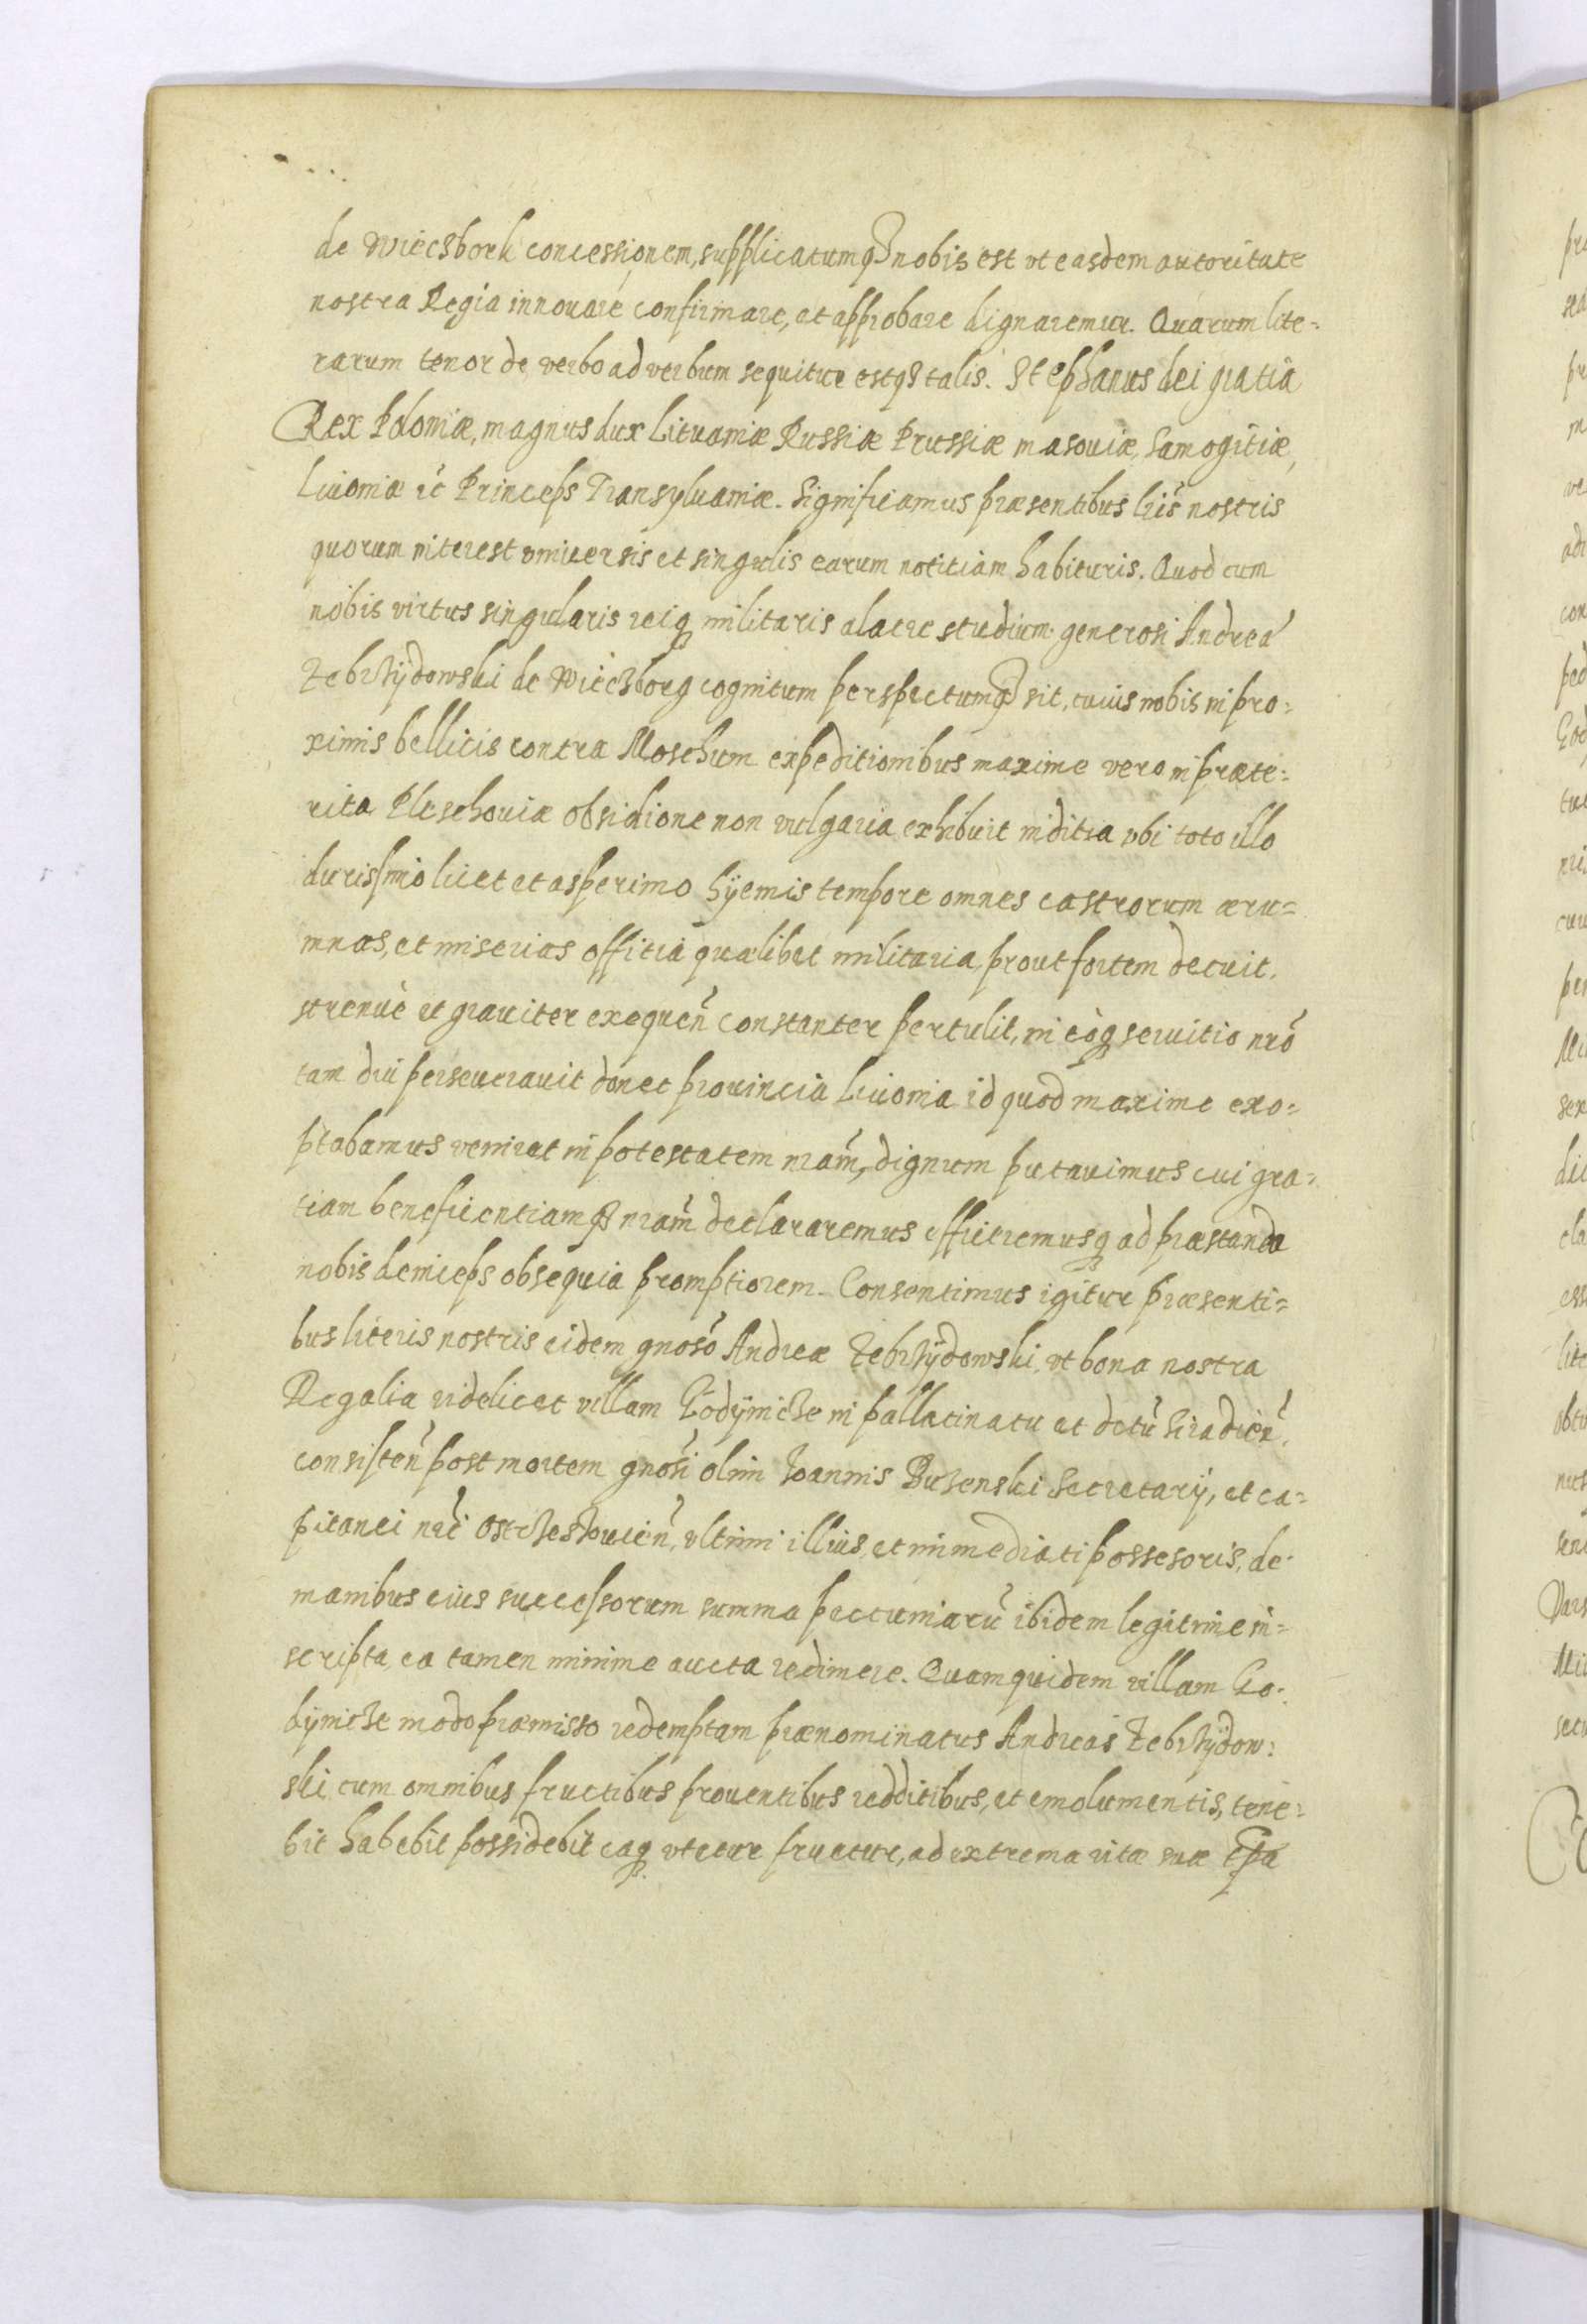 de Wiecsbork concessionem, supplicatumq nobis est vt easdem autoritate
nostra Regia innouare confirmare, et approbare dignaremur. Quarum lite=
rarum tenor de verbo ad verbum sequitur estq talis. Stephanus dei gratia
Rex Poloniæ, magnus dux Lituaniæ Russiæ Prussiæ masouiæ, Samogitiæ,
Liuoniæ ec̃ Princeps Transyluaniæ. Significamus præsentibus lr̃is nostris
quorum interest vniuersis et singulis earum notitiam habituris. Quod cum
nobis virtus singularis reiq militaris alacre studium generosi Andreæ
Zebrzÿdowski de Wieczborg cognitum perspectumq sit, cuius nobis in pro=
ximis bellicis contra Moschum expeditionibus maxime vero in præte=
rita Pleschouiæ obsidione non vulgaria exhibuit inditia vbi toto illo
durissimo licet et asperimo hÿemis tempore omnes castrorum æru=
mnas, et miserias offitia quælibet militaria, prout fortem decuit,
strenuè et grauiter exequeñ constanter pertulit, in eoq seruitio nr̃o
tam diu perseuerauit donec prouincia Liuonia id quod maxime exo=
ptabamus venirat in potestatem nr̃am, dignum putauimus cui gra=
tiam beneficentiamq nr̃am declararemus efficeremusq ad præstanda
nobis deinceps obsequia promptiorem. Consentimus igitur præsenti=
bus literis nostris eidem gnoso Andreæ Zebrzÿdowski, vt bona nostra
Regalia videlicet villam Godÿnicze in pallatinatu et dctũ Siradieñ,
consisteñ post mortem gnosi olim Ioannis Buzenski Secretarij, et ca=
pitanei nr̃i Ostrzeszouieñ, vltimi illius, et immediati possesoris, de
manibus eius successorum summa peccuniarũ ibidem legitime in=
scripta ea tamen minime aucta redimere. Quam quidem villam Go=
dÿnicze modo præmisso redemptam prænominatus Andreas Zebrzÿdow=
ski, cum omnibus fructibus prouentibus redditibus, et emolumentis, tene=
bit habebit possidebit eaq vtetur fruetur, ad extrema vitæ suæ tp̃a